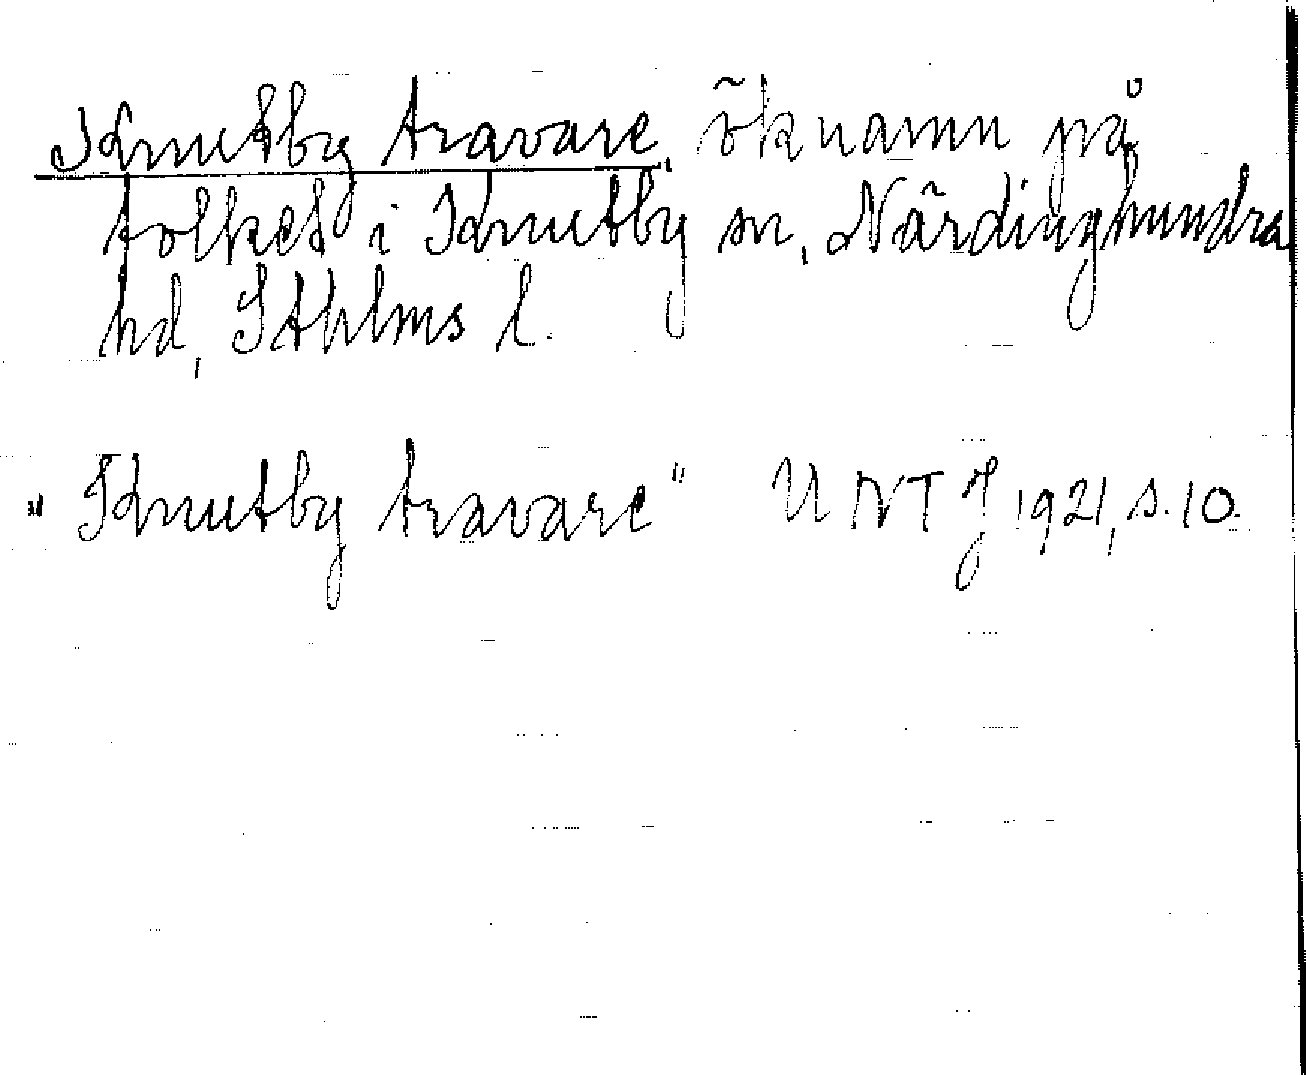 Knutby travare, öknamn på
folket i Knutby sn, Närdinghundra
hd, Sthlms l.
"Knutby travare" UNTJ 1921, s. 10.